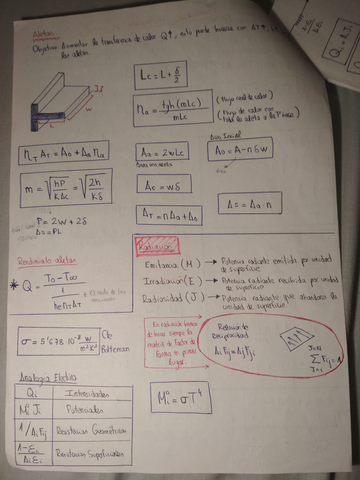 Aletas
Objetivo: Aumentar la transferencia de calor Q↑, esto puede hacerse con AT↑,
las aletas
Lc = L + δ/2
δ
w
L
ηa = tgh(mLc) / mLc
(Flujo real de calor)
(Flujo de calor con toda la aleta a la T base)
ηT AT = A0 + Aa ηa
Aa = 2wLc
Area Inicial
A0 = A - nδw
m = √(hP / KAc) = √(2h / Kδ)
Ac = wδ
P = 2w + 2δ
Aa = PL
AT = nAa + A0
As = Aa · n
Rendimiento aletas
* Q = (T0 - T∞) / (1 / he ηT AT)
Radiación
Emitancia (M) → Potencia radiante emitida por unidad de superficie
Irradiación (E) → Potencia radiante recibida por unidad de superficie
Radiosidad (J) → Potencia radiante que abandona la unidad de superficie
σ = 5'678·10⁻⁸ w / m²K⁴
Cte Boltzman
En radiación hemos de hacer siempre la matriz de factor de forma en primer lugar
Relación de Reciprocidad
Ai Fij = Aj Fji
j=N
∑ Fij = 1
j=1
Analogía Eléctrica
Qi Intensidades
Mi° Ji Potenciales
1/Ai Fij Resistencias Geométricas
1-εi / Ai εi Resistencias Superficiales
Mi° = σT⁴